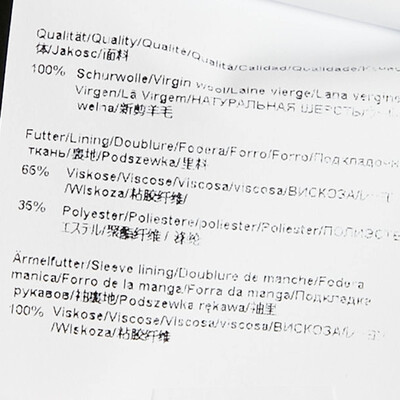 Qualität/Quality/Qualité/Qualità/Calidad/Qualidade/
体/Jakosc/面料
100% Schurwolle/Virgin wool/Laine vierge/Lana vergine
Virgen/Lã Virgem/НАТУРАЛЬНАЯ ШЕРСТЬ/
wełna/新剪羊毛
Futter/Lining/Doublure/Fodera/Forro/Forro/Подкладочн
ткань/裏地/Podszewka/里料
65% Viskose/Viscose/Viscose/viscosa/viscosa/ВИСКОЗА/
/Wiskoza/粘胶纤维/
35% Polyester/Poliestere/poliester/Poliester/ПОЛИЭСТЕ
エステル/聚酯纤维/涤纶
Ärmelfutter/Sleeve lining/Doublure de manche/Fodera
manica/Forro de la manga/Forra da manga/Подкладка
рукавов/袖裏地/Podszewka rękawa/袖里
100% Viskose/Viscose/Viscose/Viscosa/viscosa/ВИСКОЗА/
/Wiskoza/粘胶纤维